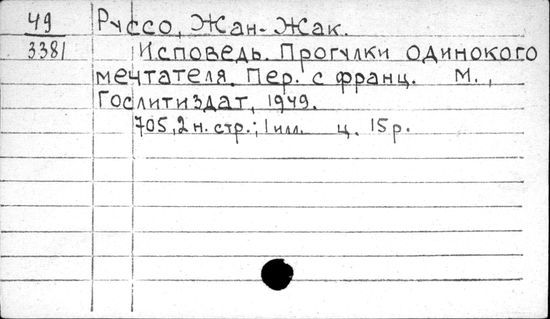 49 Руссо, Жан-Жак.
3381 Исповедь. Прогулки одинокого
мечтателя. Пер. с франц. М.,
Гослитиздат, 1949.
705, 2 н. стр.; 1 илл. ц. 15 р.